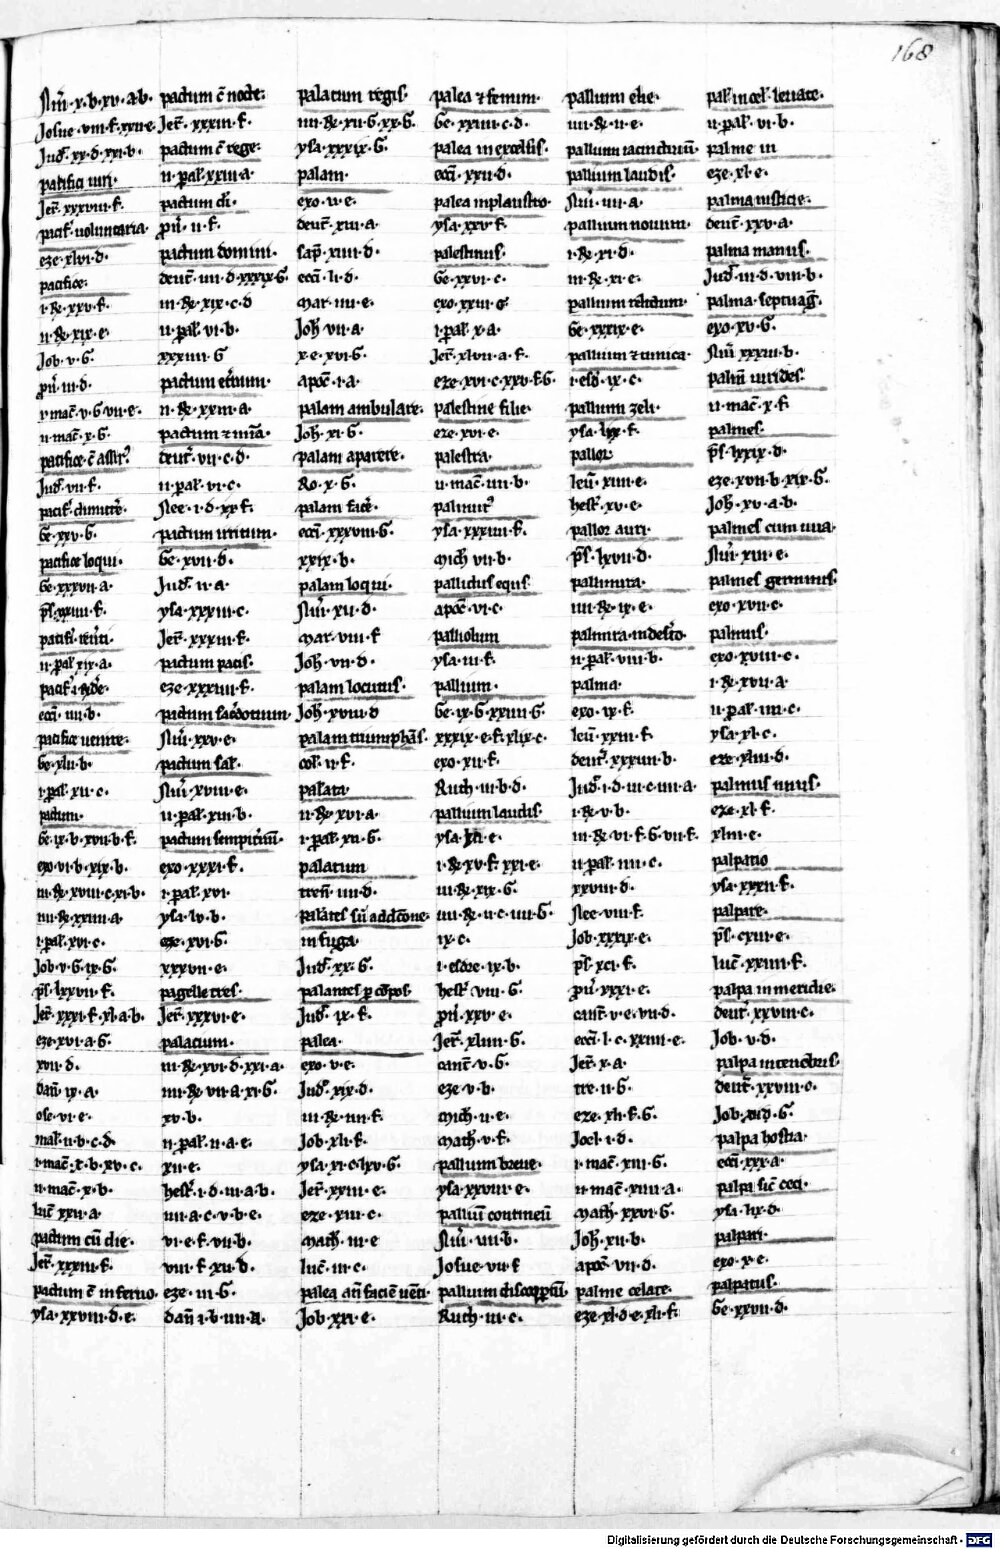 168
Nūi·x·b·xv·a·b·
Josue·viii·f·xxii·e·
Jud͛·xx·d·xxi·b·
pacifici viri·
Jer͛·xxxviii·f·
pacif͛ voluntaria·
eze·xlvi·d·
pacifice·
i·R̄e·xxv·f·
ii·R̄e·xix·e·
Job·v·G·
pū·iii·d·
i·mac̄·v·G·vii·e·
ii·mac̄·x·G·
Jud͛·vii·f·
pacif͛ dimittē·
Ge·xxv·G·
pacifice loqui·
Ge·xxxvii·a·
ii·pal͛·xix·a·
ecci·iiii·b·
pacifice venire·
Ge·xlii·b·
i·pal͛·xii·c·
pactum·
Ge·ix·b·xvii·b·f·
exo·vi·b·xix·b·
iii·R̄e·xviii·c·xi·b·
iiii·R̄e·xxiii·a·
i·pal͛·xvi·c·
Job·v·G·ix·G·
ps̄·lxxvii·f·
Jer͛·xxxi·f·xl·a·b·
eze·xvi·a·G·
xvii·d·
dan̄·ix·a·
ose·vi·e·
mal͛·ii·b·c·d·
i·mac̄·x·b·xv·c·
ii·mac̄·x·b·
luc̄·xxii·a·
pactum cū die·
Jer͛·xxxiii·f·
pactum c̄ inferno·
ysa·xxviii·d·e·
pactum c̄ nocte·
Jer͛·xxxiii·f·
pactum c̄ rege·
ii·pal͛·xxiii·a·
pactum di·
pū·ii·f·
pactum domini·
deut͛·iiii·d·xxxix·G·
iii·R̄e·xix·c·d
ii·pal͛·vi·b·
xxxiiii·G
pactum et̄num·
ii·R̄e·xxiii·a·
pactum ⁊ mīa·
deut͛·vii·c·d·
ii·pal͛·vi·c·
Nee·i·d·ix·f·
pactum irritum·
Ge·xvii·d·
Jud͛·ii·a·
ysa·xxxiii·c·
Jer͛·xxxiii·f·
pactum pacis·
eze·xxxiiii·f·
pactum sac̄dotium·
Nūi·xxv·e·
pactum sal͛·
Nūi·xviii·e·
ii·pal͛·xiii·b·
pactum sempit̄nū·
exo·xxxi·f·
i·pal͛·xvi·
ysa·lv·b·
eze·xvi·G·
xxxvii·e·
pagelle tres·
Jer͛·xxxvi·e·
palacium·
iii·R̄e·xvi·d·xxi·a·
iiii·R̄e·vii·a·xi·G·
xv·b·
ii·pal͛·ii·a·e·
xii·e·
hest͛·i·d·iii·a·b·
iiii·a·c·v·b·e·
vi·e·f·vii·b·
viii·f·xii·d·
eze·iii·G·
dan̄·i·b·iiii·a·
palacium regis·
iiii·R̄e·xii·G·xx·G·
ysa·xxxix·G·
palam·
exo·ii·e·
deut͛·xiii·a·
sap̄·xiiii·d·
ecci·li·d·
Mar·iiii·e·
Joh̄·vii·a·
x·e·xvi·G·
apoc̄·i·a·
palam ambulare·
Joh̄·xi·G·
palam aparere·
Ro·x·G·
palam facē·
ecci·xxxviii·G·
xxix·b·
palam loqui·
Nūi·xii·d·
Mar·viii·f
Joh̄·vii·d·
palam locutus·
Joh̄·xviii·d
palam triumphās·
col͛·ii·f·
palata·
ii·R̄e·xvi·a·
i·pal͛·xii·G·
palatum
tren̄·iiii·d·
in fuga·
Jud͛·xx·G·
Jud͛·ix·f·
palea·
exo·v·e·
Jud͛·xix·d·
iii·R̄e·iiii·f·
Job·xli·f·
ysa·xi·c·lxv·G·
Jer͛·xxiii·e·
eze·xiii·c·
Math·iii·e
luc̄·iii·c·
palea an̄ faciē vēti·
Job·xxi·e·
palea ⁊ femum·
Ge·xxiiii·c·d·
palea in excelsis·
ecci·xxii·d·
palea in plaustro·
ysa·xxv·f·
palestinus·
Ge·xxvi·c·
exo·xxiii·G·
i·pal͛·x·a·
Jer͛·xlvii·a·f·
eze·xvi·c·xxv·f·G·
palestine filie·
eze·xvi·e·
palestra·
ii·mac̄·iiii·b·
paliurꝰ
ysa·xxxiiii·f·
Mich̄·vii·b·
pallidus equs
apoc̄·vi·c·
palliolum
ysa·iii·f·
pallium·
Ge·ix·G·xxiiii·G·
xxxix·e·f·xlix·c·
exo·xii·f·
Ruth·iii·b·d·
pallium laudis·
i·R̄e·xv·f·xxi·e·
iii·R̄e·xix·G·
iiii·R̄e·ii·c·iiii·G·
ix·c·
i·esdre·ix·b·
hest͛·viii·G·
pū·xxv·e·
Jer͛·xliii·G·
cant͛·v·G·
eze·v·b·
Mich̄·ii·e·
Math̄·v·f·
pallium breue·
ysa·xxviii·e·
palliū continēti
Nūi·iiii·b·
Josue·vii·f
Ruth·iii·c·
pallium elie·
iiii·R̄e·ii·e·
pallium iacinctinū
pallium laudis·
Nūi·iiii·a·
pallium nouum·
i·R̄e·xi·d·
iii·R̄e·xi·e·
pallium relictum·
Ge·xxxix·e·
pallium ⁊ tunica·
i·esd͛·ix·c·
pallium zeli·
ysa·lix·f·
pallor
leui͛·xiii·e·
hest͛·xv·e·
pallor auri·
ps̄·lxvii·d·
palmira·
iiii·R̄e·ix·e·
palmira·in des̄to·
ii·pal͛·viii·b·
palma·
exo·ix·f·
leui͛·xxiii·f·
deut͛·xxxiiii·b·
Jud͛·i·d·iii·c·iiii·a·
i·R̄e·v·b·
iii·R̄e·vi·f·G·vii·f·
ii·pal͛·iiii·c·
xxviii·d·
Nee·viii·f·
Job·xxxix·e·
ps̄·xci·f·
pū·xxxi·e·
cant͛·v·e·vii·d·
ecci·l·c·xxiiii·e·
Jer͛·x·a·
tre·ii·G·
eze·xli·f·G·
Joel·i·d·
i·mac̄·xiii·G·
ii·mac̄·xiiii·a·
Math·xxvi·G·
Joh̄·xii·b·
apoc̄·vii·d·
palme celate·
eze·xl·d·e·xli·f·
pal͛ in cel͛ leuate·
ii·pal͛·vi·b·
palme in
eze·xl·e·
palma iusticie·
deut͛·xxv·a·
palma manus·
Jud͛·iii·d·viii·b·
palma septuag̅·
exo·xv·G·
Nūi·xxxiii·b·
palm̄ virides·
ii·mac̄·x·f·
palmes·
ps̄·lxxix·d·
eze·xvii·b·xix·G·
Joh̄·xv·a·b·
palmes cum vua·
Nūi·xiii·e·
palmes germinis·
exo·xvii·c·
palmus·
exo·xviii·c·
i·R̄e·xvii·a
ii·pal͛·iiii·c·
ysa·xl·c·
eze·xliii·d·
palmus unus·
eze·xl·f·
xliii·e·
palpatio
ysa·xxxii·f·
palpare·
ps̄·cxiii·e·
luc̄·xxiiii·f·
palpa in meridie·
deut͛·xxviii·c·
Job·v·d·
palpa in tenebris·
deut͛·xxviii·c·
Job·xii·d·G·
palpa hostia·
ecci·xxx·a·
palpa sic̄ ceci·
ysa·lix·d·
palpari·
exo·x·e·
palpatus·
Ge·xxvii·d·
Digitalisierung gefördert durch die Deutsche Forschungsgemeinschaft - DFG